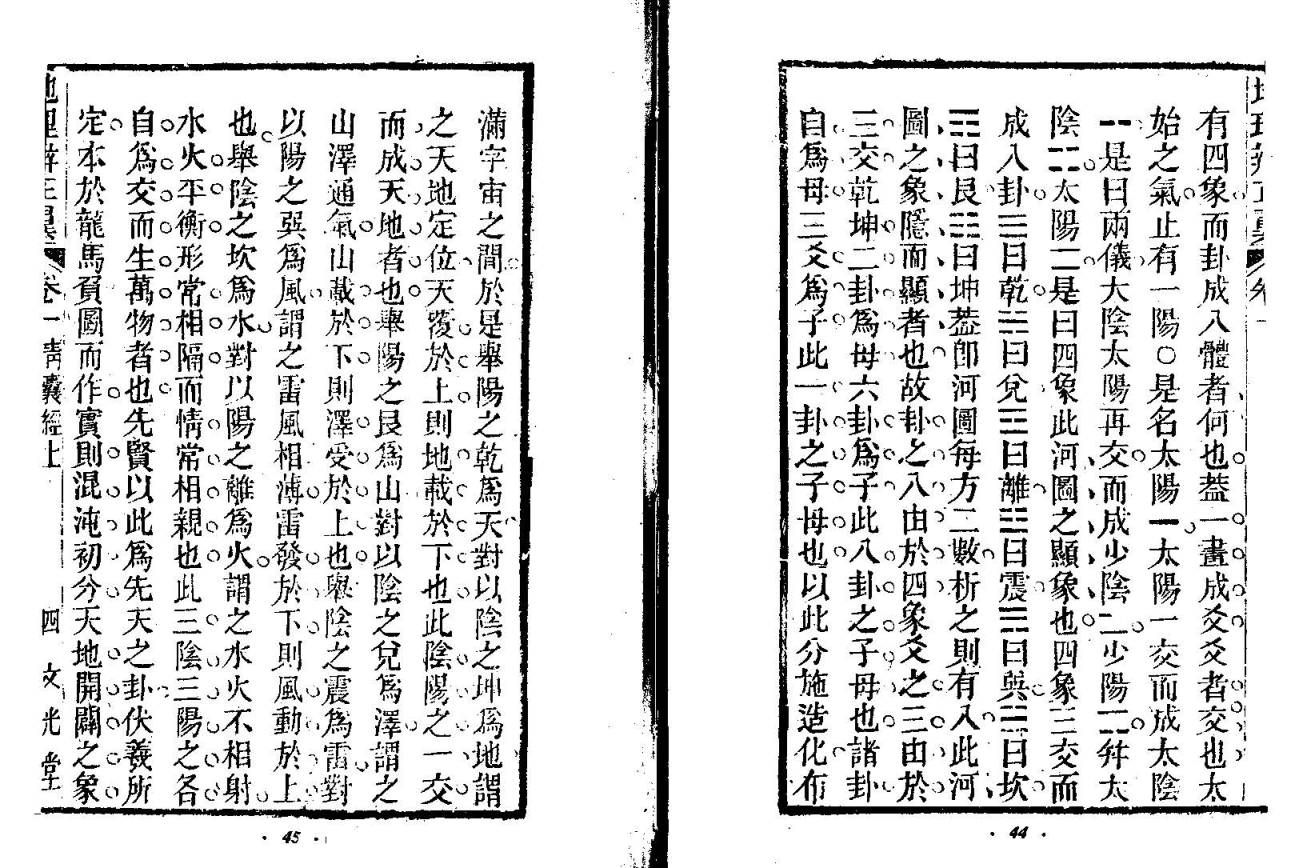 有四象而卦成八體者何也葢一畫成爻爻者交也太
始之氣止有一陽○是名太陽⚊太陽一交而成太陰
⚋是曰兩儀太陰太陽再交而成少陰⚍少陽⚎幷太
陰⚏太陽⚌是曰四象此河圖之顯象也四象三交而
成八卦☰曰乾☱曰兌☲曰離☳曰震☴曰巽☵曰坎
☶曰艮☷曰坤葢卽河圖每方二數析之則有八此河
圖之象隱而顯者也故卦之八由於四象爻之三由於
三交乾坤二卦爲母六卦爲子此八卦之子母也諸卦
自爲母三爻爲子此一卦之子母也以此分施造化布
· 44 ·
滿宇宙之間於是舉陽之乾爲天對以陰之坤爲地謂
之天地定位天覆於上則地載於下也此陰陽之一交
而成天地者也舉陽之艮爲山對以陰之兌爲澤謂之
山澤通氣山載於下則澤受於上也舉陰之震爲雷對
以陽之巽爲風謂之雷風相薄雷發於下則風動於上
也舉陰之坎爲水對以陽之離爲火謂之水火不相射
水火平衡形常相隔而情常相親也此三陰三陽之各
自爲交而生萬物者也先賢以此爲先天之卦伏羲所
定本於龍馬負圖而作實則混沌初分天地開闢之象
卷一靑囊經上 四 文光堂
· 45 ·